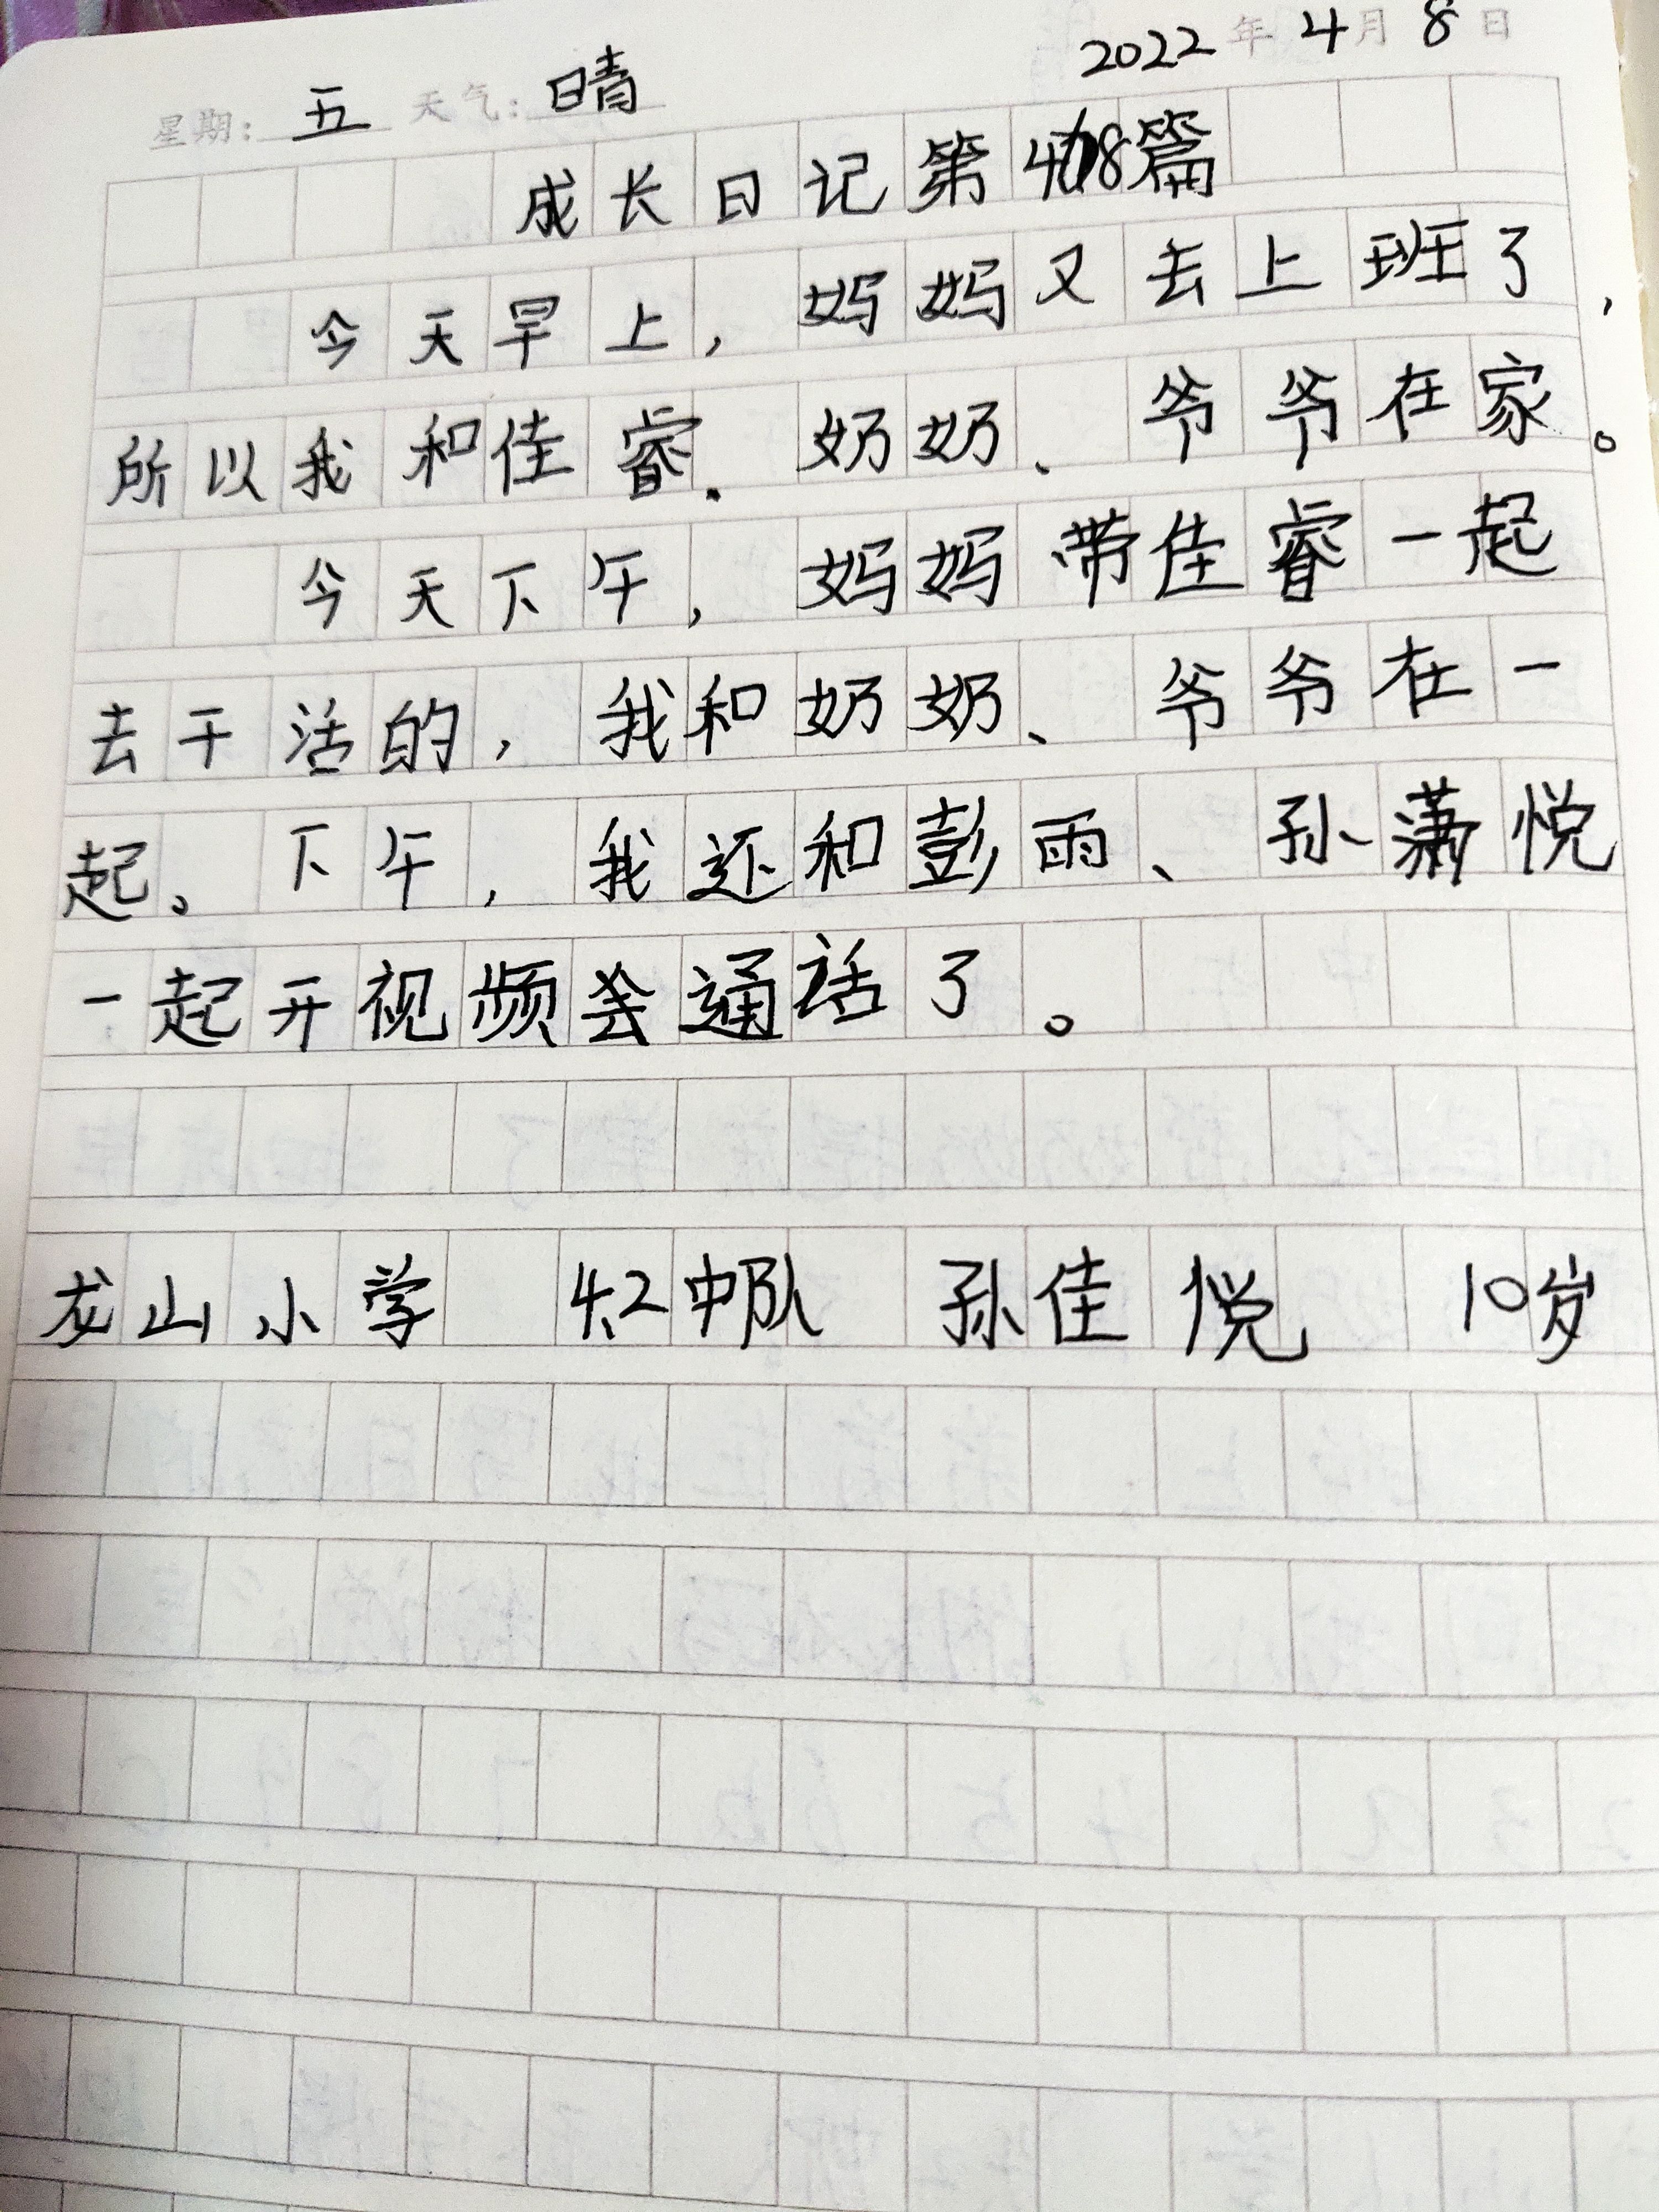 2022年4月8日
星期:五 天气:晴
成长日记第408篇
今天早上，妈妈又去上班了，
所以我和佳睿、奶奶、爷爷在家。
今天下午，妈妈带佳睿一起
去干活的，我和奶奶、爷爷在一
起。下午，我还和彭雨、孙潇悦
一起开视频会通话了。
龙山小学 4.2中队 孙佳悦 10岁